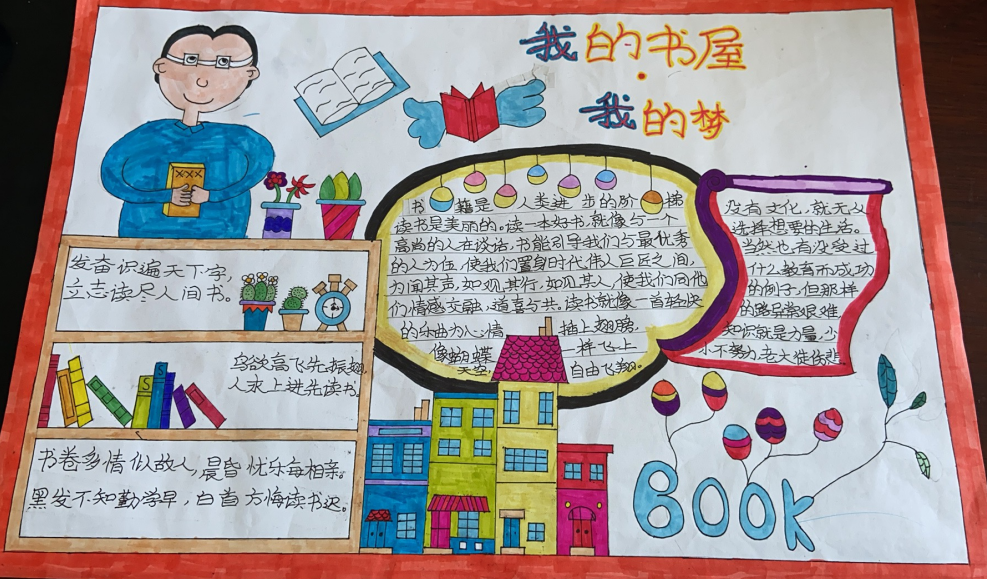 我的·书屋
我的梦
书籍是人类进步的阶梯
读书是美丽的。读一本好书,就像与一个
高尚的人在谈话,书能引导我们与最优秀
的人为伍,使我们置身时代伟人巨匠之间,
为闻其声,如观其行,如见其人,使我们同他
们情感交融,道喜与共。读书就像一首轻快
的乐曲为人心情插上翅膀,
像蝴蝶一样飞上
天空自由飞翔。
没有文化,就无从
选择想要的生活。
当然也有没受过
什么教育而成功
的例子,但那样
的路异常艰难
知识就是力量,少
小不努力,老大徒伤悲
发奋识遍天下字,
立志读尽人间书。
鸟欲高飞先振翅
人求上进先读书
书卷多情似故人,晨昏忧乐每相亲。
黑发不知勤学早,白首方悔读书迟。
XXX
S
S
BOOK